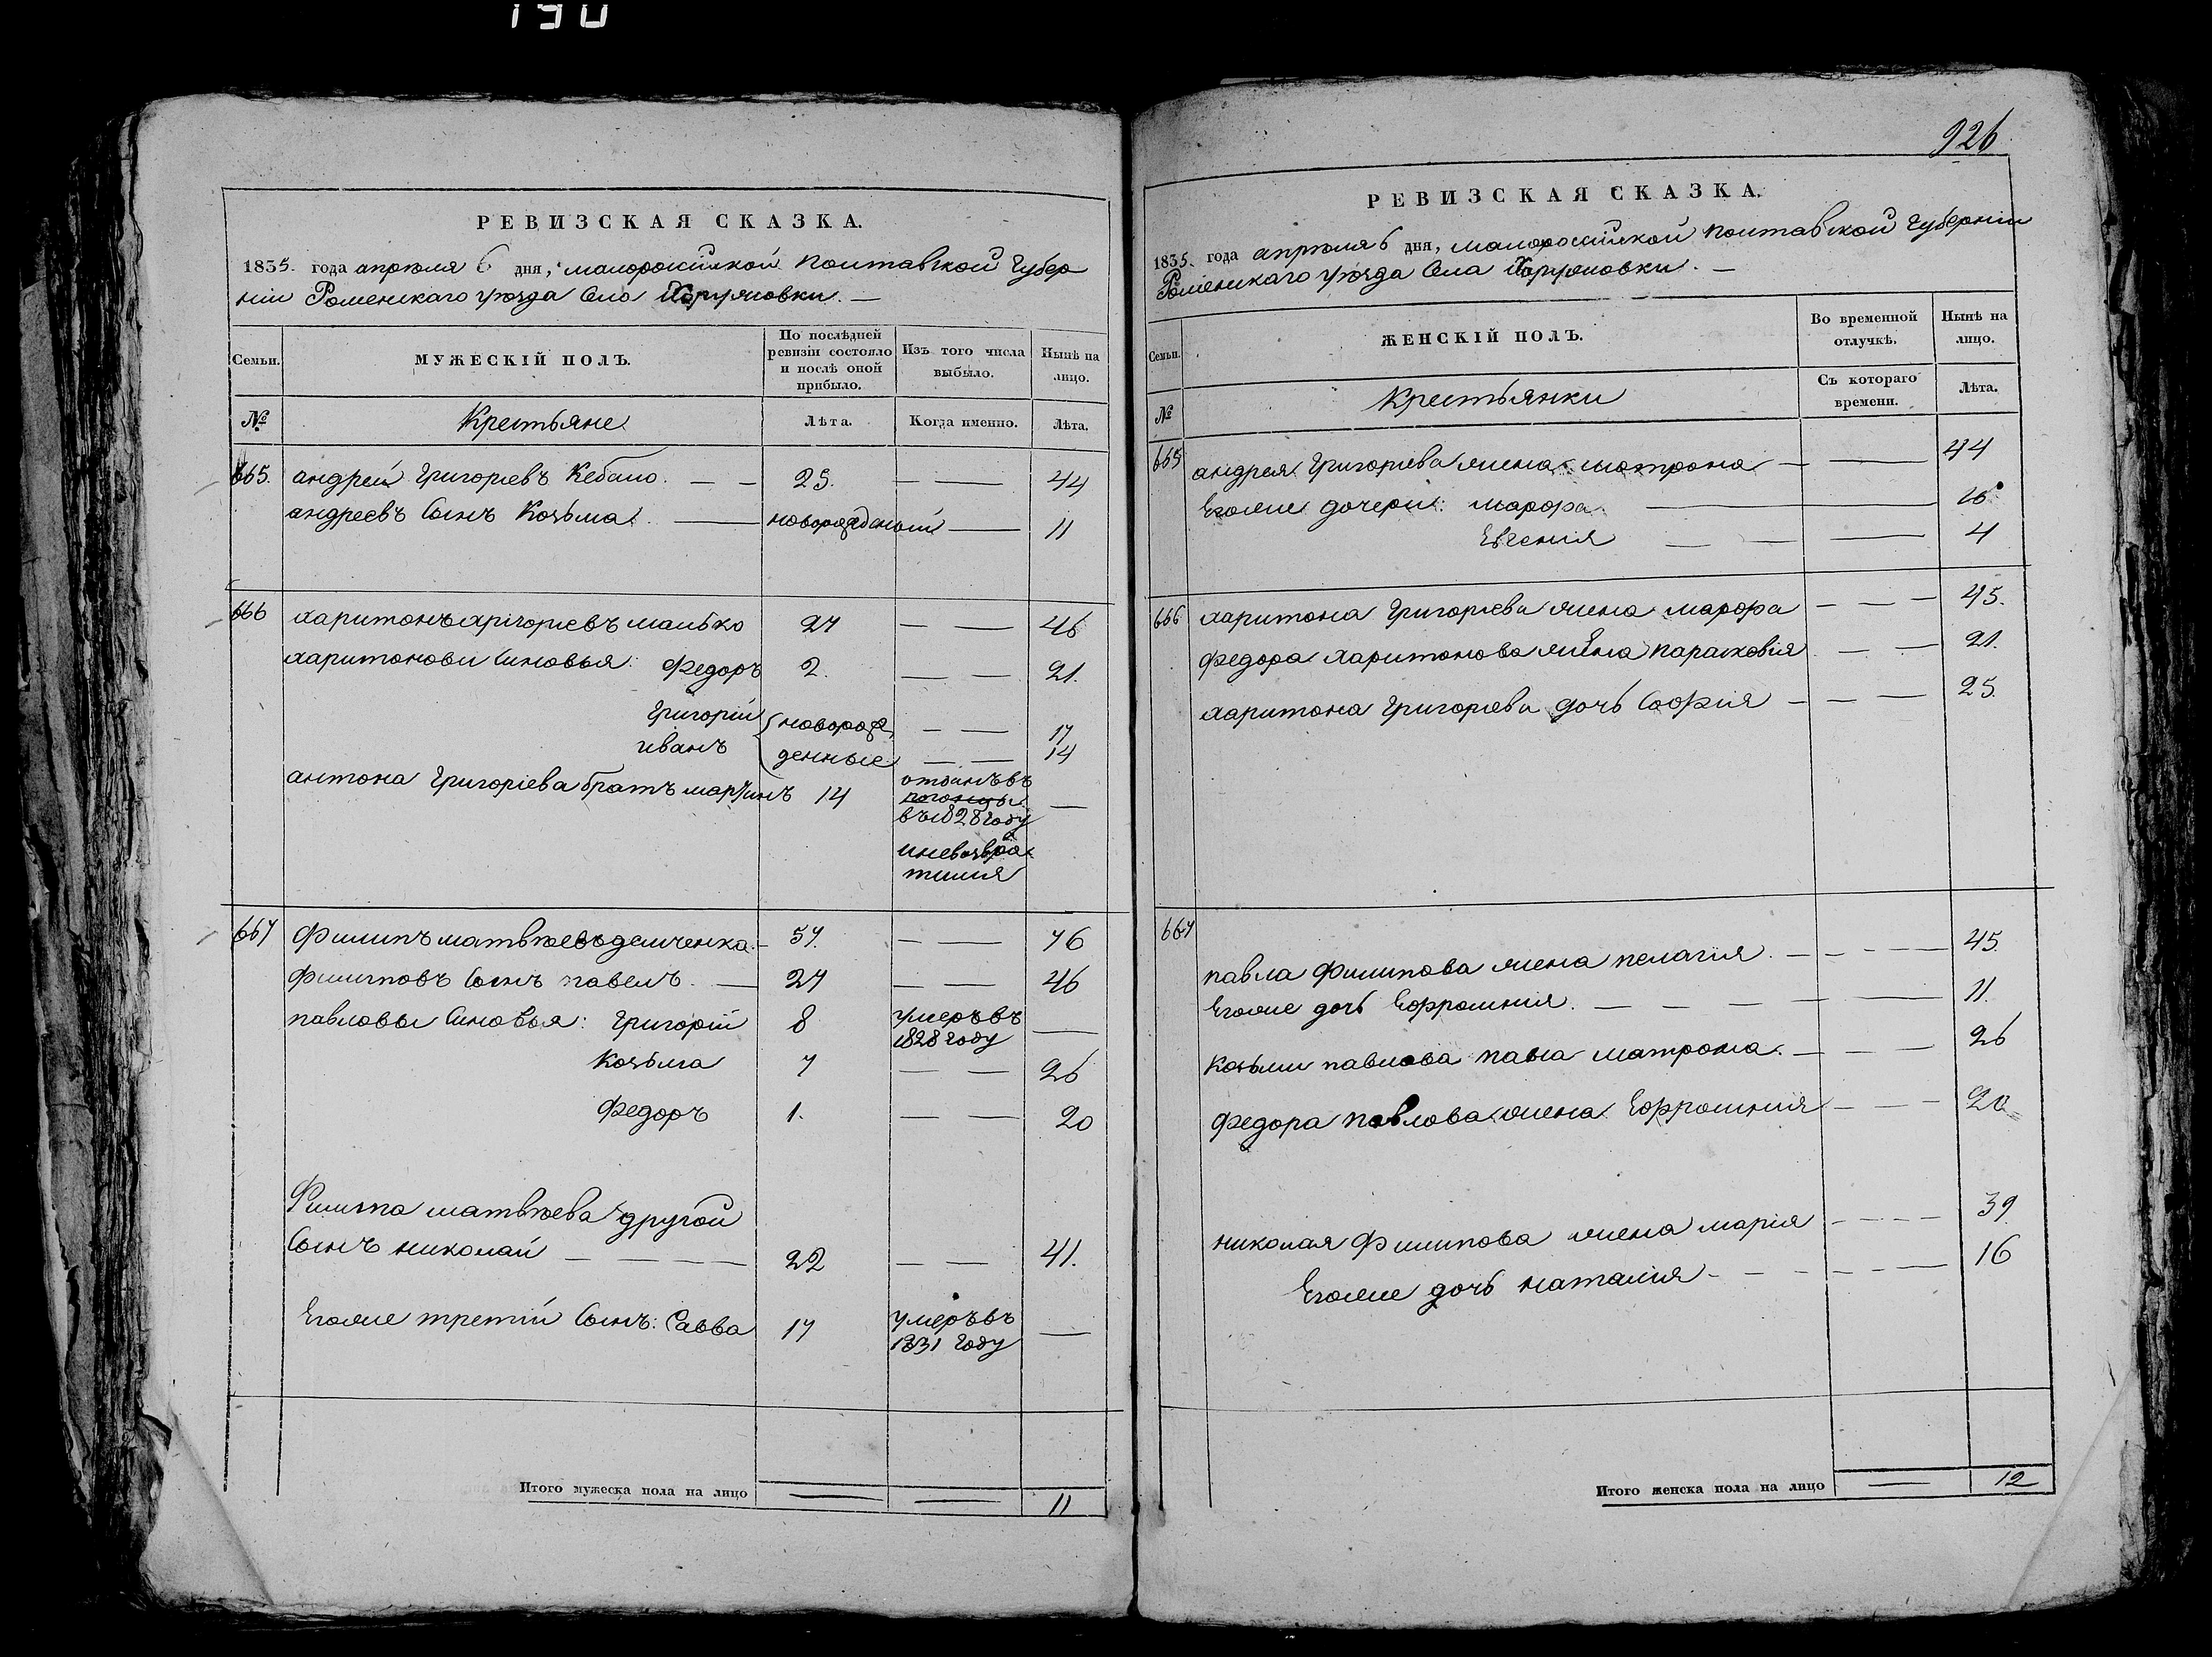 190
РЕВИЗСКАЯ СКАЗКА.
1835. года апрѣля 6 дня, малоросійской полтавской губер
ніи Роменскаго уѣзда села Хоружовки. —
Семьи.
МУЖЕСКІЙ ПОЛЪ.
По послѣдней ревизіи состояло и послѣ оной прибыло.
Изъ того числа выбыло.
Нынѣ на лицо.
№ Крестьяне Лѣта. Когда именно. Лѣта.
665. андрей григоріевъ Кебало. — — 25. — — 44
андреевъ сынъ Козьма. — новорожденный — 11
666 харитонъ григоріевъ малько 27 — — 46
харитоновы сыновья: Федоръ 2. — — 21.
григорій новорож — — 17
иванъ денные — — 14
антона григоріева братъ мартинъ 14 отданъ въ —
погонцы
въ 1828 году
и невозвра
тился
667 филипъ матвѣевъ демченка. — 57. — — 76
филиповъ сынъ павелъ. — 27 — — 46
павловы сыновья: григорій 8 умеръ въ —
1828 году
Козьма 7 — — 26
Федоръ 1. — — 20
Филипа матвѣева другой
сынъ николай — — — — 22 — — 41.
Егоже третій сынъ: Савва 17 умеръ въ —
1831 году
Итого мужеска пола на лицо — — 11
926
РЕВИЗСКАЯ СКАЗКА.
1835. года апрѣля 6 дня, малоросійской полтавской губерніи
Роменскаго уѣзда села Хоружовки. —
Семьи.
ЖЕНСКІЙ ПОЛЪ.
Во временной отлучкѣ.
Нынѣ на лицо.
№ Крестьянки Съ котораго времени. Лѣта.
665 андрея григоріева жена матрона — — 44
Егоже дочери: марфа — — 16
Евгенія — — — 4
666 харитона григоріева жена марфа — — — 45.
федора харитонова жена парасковія — — 21.
харитона григоріева дочь софія — — — 25.
667
павла филипова жена пелагія. — — — — 45.
Егоже дочь Ефросинія. — — — — — 11.
козьмы павлова жена матрона. — — — 26
федора павлова жена Ефросинія — — — 20
николая филипова жена марія — — — — 39.
Егоже дочь наталия — — — — — 16
Итого женска пола на лицо — 12